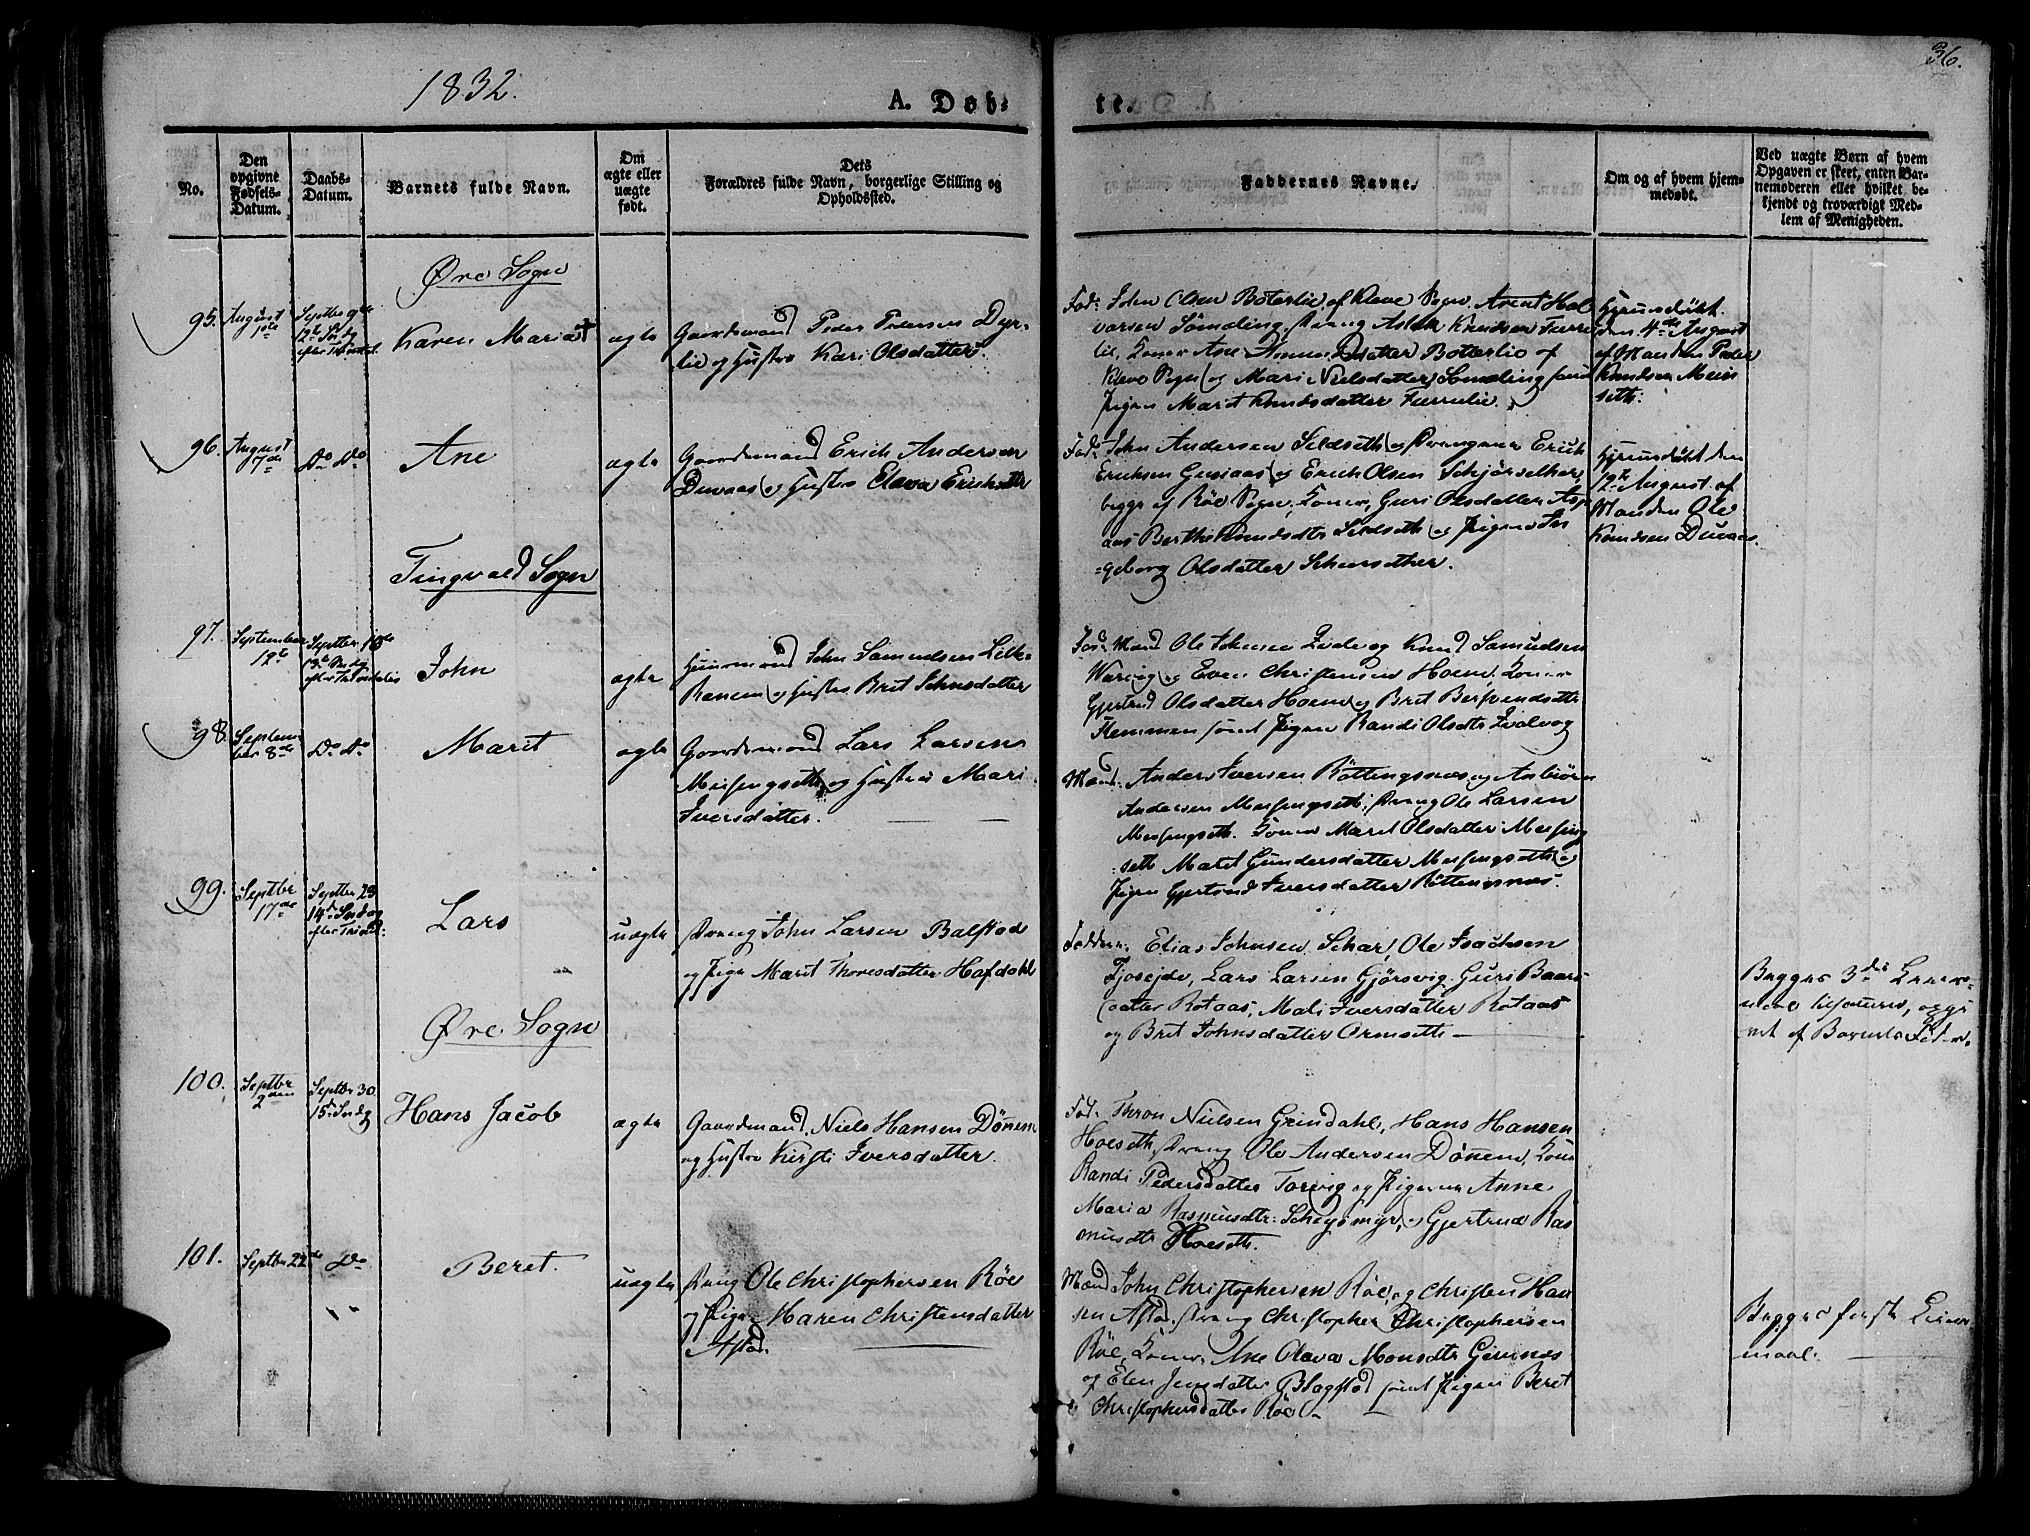 36.
1832.
A. Døb-
te.
No.
Den
opgivne
Fødsels-
Datum.
Daabs-
Datum.
Barnets fulde Navn.
Om
ægte eller
uægte
født.
Dets
Forældres fulde Navn, borgerlige Stilling og
Opholdssted.
Faddernes Navne.
Om og af hvem hjem-
medøbt.
Ved uægte Børn af hvem
Opgaven er skeet, enten Bar-
nemoderen eller hvilket be-
kjendt og troværdigt Med-
lem af Menigheden.
Øre Sogn
95.
August
1ste
Septbr 9de
12te Sndg
efter Trinitat.
Karen Maria
ægte
Gaardmand Peder Pedersen Dyr-
lie og Hustro Kari Olsdatter.
Fad: John Olsen Boterlie af Kleve Sogn, Arent Hal
varsen Sømeling, Dreng Aslak Knudsen Furre
lie, Koner Ane Datter Botterlie af
Kleve Sogn og Mari Nielsdatter Sømeling samt
Pigen Marit Knudsdatter Furrelie.
Hjemdøbt
den 4de August
af Manden Peder
Knudsen Mein
seth.
96.
August
7de
Do Do
Ane
ægte
Gaardmand Erich Andersen
Duvaas og Hustro Olava Erichsdtr
Fad: John Andersen Sildseth og Drengene Erich
Erichsen Gusiaas og Erich Olsen
begge af Røe Sogn, Koner, Guri Olsdatter Asp
aas Berthe Knudsdtr Sildseth og Pigen In
geborg Olsdatter
Hjemdøbt den
12te August af
Manden Ole
Knudsen Duvaas.
Tingvold Sogn
97.
September
12te
Septbr 16de
13de Sndg
efter Trinitatis
John
ægte
Huusmand John Samuelsen Lille-
Ranem og Hustro Brit Johnsdatter
Fad: Mænd Ole Johnsen Hvalvog Knud Samuelsen
Waavog og Even Christensen Hoem, Koner
Gjertrud Olsdatter Hoem og Brit Bersvendsdtr
Kemmem samt Pigen Randi Olsdtr Hvalvog
98.
Septem
ber 8de
Do Do
Marit
ægte
Gaardmand Lars Larsen
Meisingseth og Hustro Mari
Iversdatter.
Mænd: Anders Iversen Rottingsnæs og Anbiørn
Andersen Meisingseth, Dreng Ole Larsen
Meisingseth. Koner Marit Olsdatter Meising
seth Marit Gundersdatter Meisingseth og
Pigen Gjertrud Iversdatter Rottingsnæs.
99.
Septbr
17de
Septbr 23
14de Sndag
efter Trinit:
Lars
uægte
Dreng John Larsen Balstad
og Pige Marit Thoresdatter Hafdahl
Faddere: Elias Johnsen Schar, Ole Isachsen
Fjoseide, Lars Larsen Gjørsvig, Guri Baars
datter Rotaas, Mali Iversdatter Rotaas
og Brit Johnsdatter Ormseth
Begges 3die Leier-
maal tilsammen, opgi
vet af Barnets Fader.
Øre Sogn
100.
Septbr
2den
Septbr 30
15de Sndg
Hans Jacob
ægte
Gaardmand, Niels Hansen Dønnem
og Hustro Kirsti Iversdatter.
Fad: Thron Nielsen Grindahl, Hans Hansen
Hoeseth, Dreng Ole Andersen Dønnem, Kone
Randi Pedersdatter Torvig og Pigerne Anne
Maria Rasmusdtr: og Gjertrud Ras
musdtr Hoeseth.
101.
Septbr 22de
Do
Beret.
uægte
Dreng Ole Christophersen Røe
og Pige Maren Christensdatter
Astad.
Mænd John Christophersen Røe og Christen Han
sen Astad. Dreng Christopher Christophersen
Røe, Koner, Ane Olava Monsdtr Gimnæs
og Elen Jensdatter Blagstad samt Pigen Beret
Christophersdatter Røe
Begges første Leier
maal.